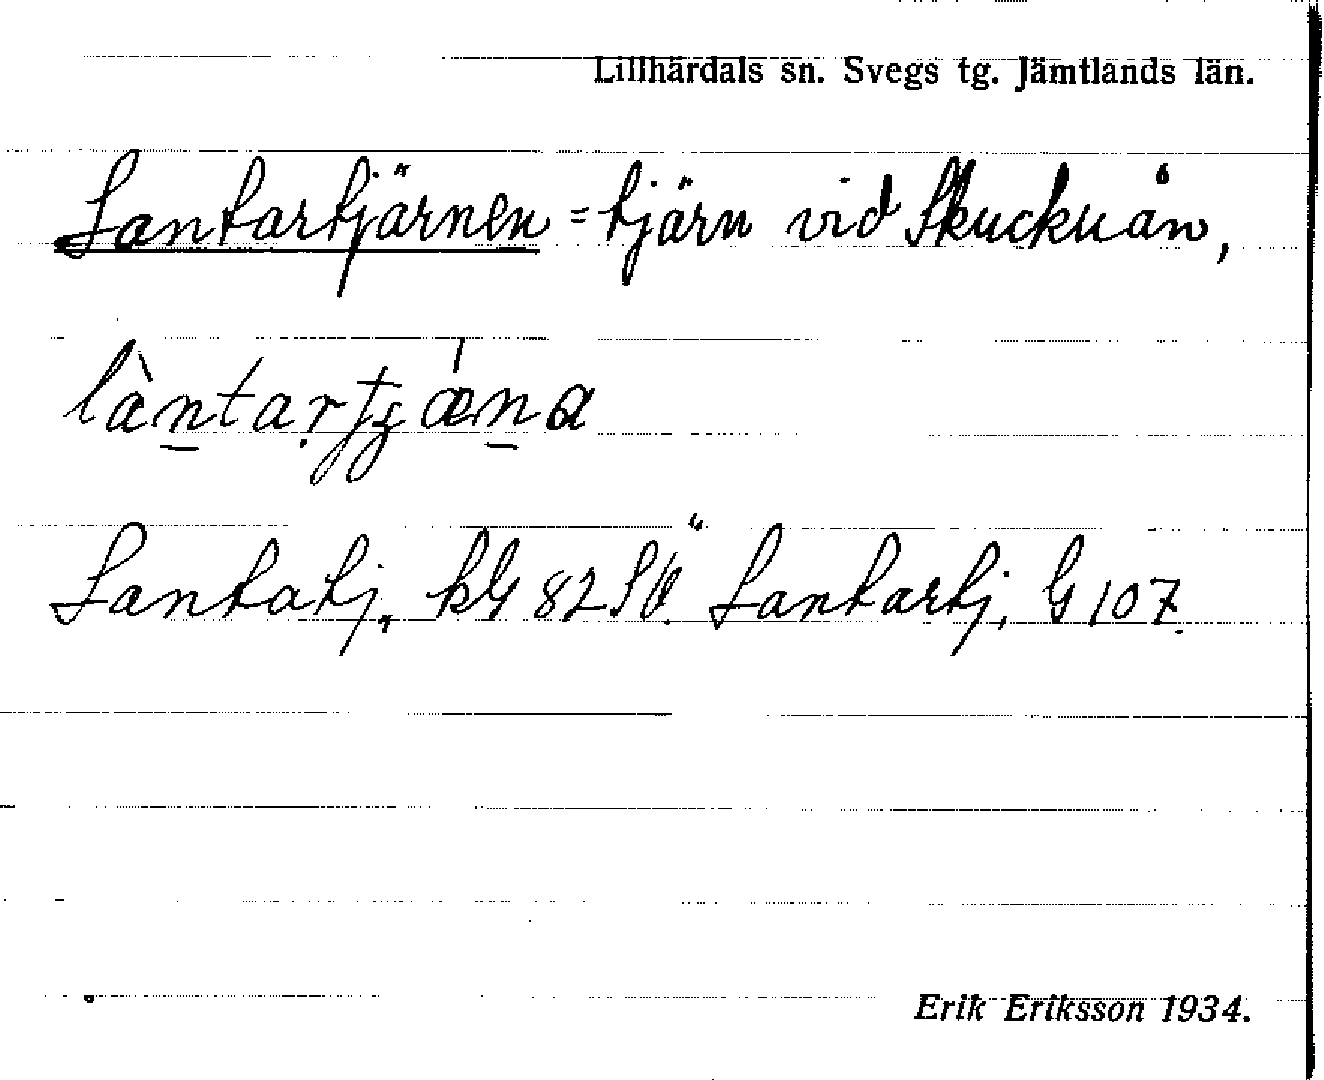 Lillhärdals sn. Svegs tg. Jämtlands län.
Lantartjärnen = tjärn vid Skuckuån,
Lantatj., kG 82 SV. Lantartj, G 107.
Erik Eriksson 1934.